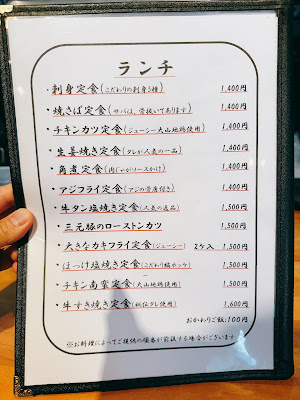 ランチ
・刺身定食(こだわりの刺身5種) 1,400円
・焼きさば定食(サバは、骨抜いてあります) 1,400円
・チキンカツ定食(ジューシー大山地鶏使用) 1,400円
・生姜焼き定食(タレが人気の一品) 1,400円
・角煮定食(肉じゃがソースかけ) 1,400円
・アジフライ定食(アジの骨唐付き) 1,400円
・牛タン塩焼き定食(人気の逸品) 1,500円
・三元豚のローストンカツ 1,500円
・大きなカキフライ定食(ジューシー) 2ケ入 1,500円
・ほっけ塩焼き定食(こだわり縞ホッケ) 1,500円
・チキン南蛮定食(大山地鶏使用) 1,500円
・牛すき焼き定食(秘伝タレ使用) 1,600円
おかわりご飯:100円
※お料理によってご提供の順番が前後する場合がございます